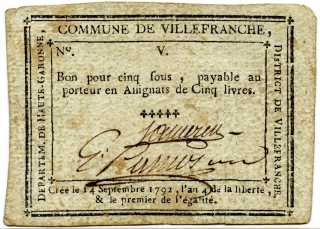 COMMUNE DE VILLEFRANCHE,
DEPARTEM. DE HAUTE-GARONNE,
DISTRICT DE VILLEFRANCHE,
No. V.
Bon pour cinq sous, payable au
porteur en Assignats de Cinq livres.
Crée le 14 Septembre 1792, l'an 4 de la liberté,
& le premier de l'égalité.